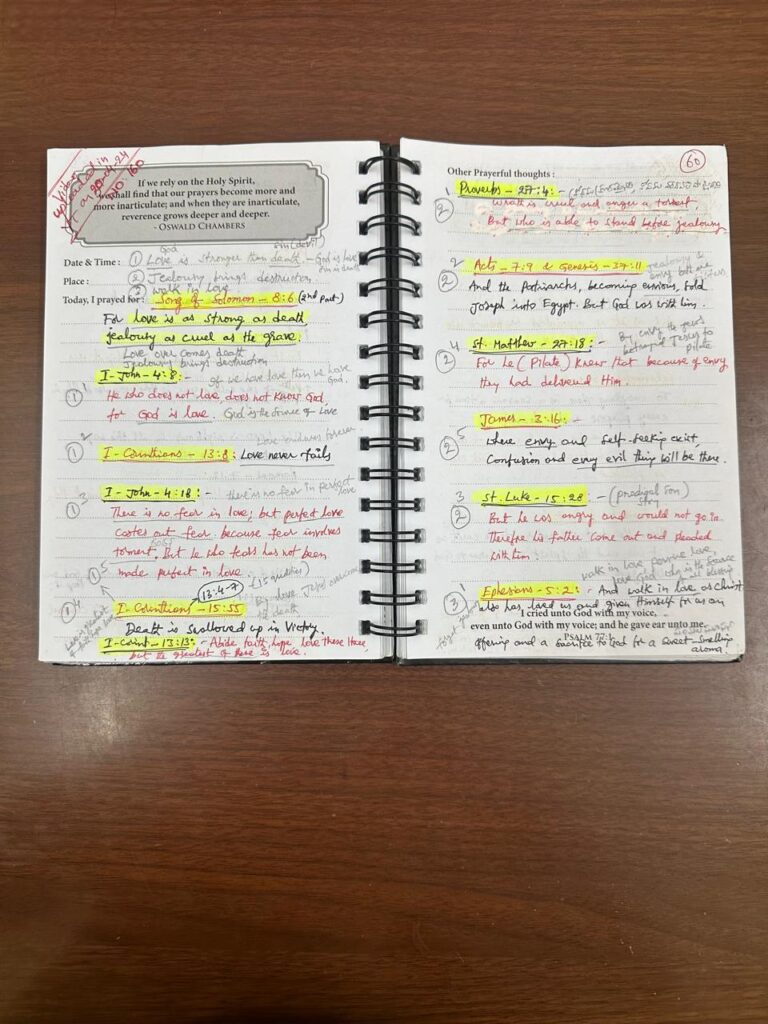 Video
uploaded in
YT on 20-4-24
NO. 160
If we rely on the Holy Spirit,
we shall find that our prayers become more and
more inarticulate; and when they are inarticulate,
reverence grows deeper and deeper.
- OSWALD CHAMBERS
God sin (devil)
Date & Time : ① Love is stronger than death - God is love
sin is death
Place : ② Jealousy brings destruction
③ walk in Love
Today, I prayed for : Song of Solomon - 8:6 (2nd part)
For Love is as strong as death,
jealousy as cruel as the grave.
Love over comes death
Jealousy brings destruction
I-John - 4:8 :- If we have love then we have
God.
① 1 He who does not love, does not know God,
for God is love. God is the source of Love
Love endures forever
① 2 I - Corinthians - 13:8 : Love never fails
I - John - 4:18 :- there is no fear in perfect
love
① 3 There is no fear in love; but perfect love
castes out fear, because fear involves
torment. But he who fears has not been
made perfect in love.
① 5 13:4-7 (15 qualities)
① 4 I - Corinthians - 15:55 By love, Jesus overcome
death
Death is swallowed up in Victory.
I-Corint - 13:13 :- Abide faith, hope love these three,
but the greatest of these is love.
Other Prayerful thoughts : 60
1 Proverbs - 27:4 :-
② Wrath is cruel and anger a torrent,
But who is able to stand before jealousy
2 Acts - 7:9 & Genesis - 37:11 jealousy &
envy
② And the Patriarchs, becoming envious, sold
Joseph into Egypt. But God was with him.
4 St. Matthew - 27:18 :- By envy the jews
betrayed Jesus to
Pilate
② For he (Pilate) knew that because of envy
they had delivered Him.
James - 3:16 :-
② 5 where envy and self-seeking exist,
Confusion and every evil thing will be there.
3 St. Luke - 15:28 - (prodigal son)
story
② But he was angry and would not go in.
Therefore his father came out and pleaded
with him
walk in love
1 Ephesians - 5:2 :- And walk in love as Christ
③ also has loved us and given Himself for us an
I cried unto God with my voice,
even unto God with my voice; and he gave ear unto me.
PSALM 77:1
offering and a sacrifice to God for a sweet-smelling
aroma!